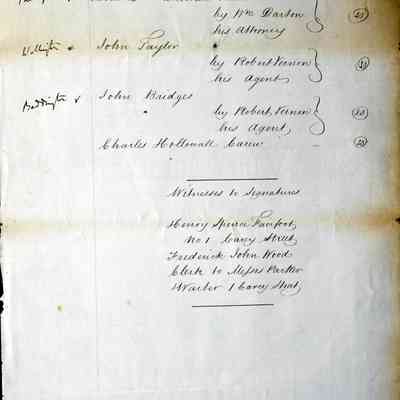 by Wm Darton
his Attorney
Wellington John Taylor
by Robert Vernon
his Agent
John Bridges
by Robert Vernon
his Agent
Charles Hallowall Carew
Witnesses to Signatures
Henry Spence
No 1 Carey Street
Frederick John Wood
Clerk to Messrs Parker
1 Carey Street